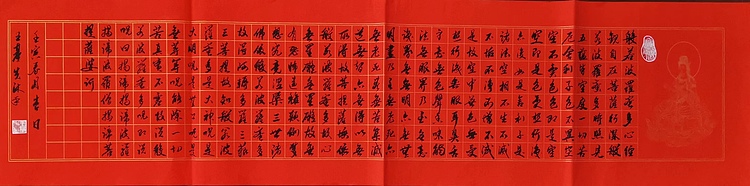 般若波羅蜜多心經
觀自在菩薩行深般
若波羅蜜多時照見
五蘊皆空度一切苦
厄舍利子色不異空
空不異色色即是空
空即是色受想行識
亦復如是舍利子是
諸法空相不生不滅
不垢不淨不增不減
是故空中無色無受
想行識無眼耳鼻舌
身意無色聲香味觸
法無眼界乃至無意
識界無無明亦無無
明盡乃至無老死亦
無老死盡無苦集滅
道無智亦無得以無
所得故菩提薩埵依
般若波羅蜜多故心
無罣礙無罣礙故無
有恐怖遠離顛倒夢
想究竟涅槃三世諸
佛依般若波羅蜜多
故得阿耨多羅三藐
三菩提故知般若波
羅蜜多是大神咒是
大明咒是無上咒是
無等等咒能除一切
苦真實不虛故說般
若波羅蜜多咒即說
咒曰揭諦揭諦波羅
揭諦波羅僧揭諦菩
提薩婆訶
壬寅春月